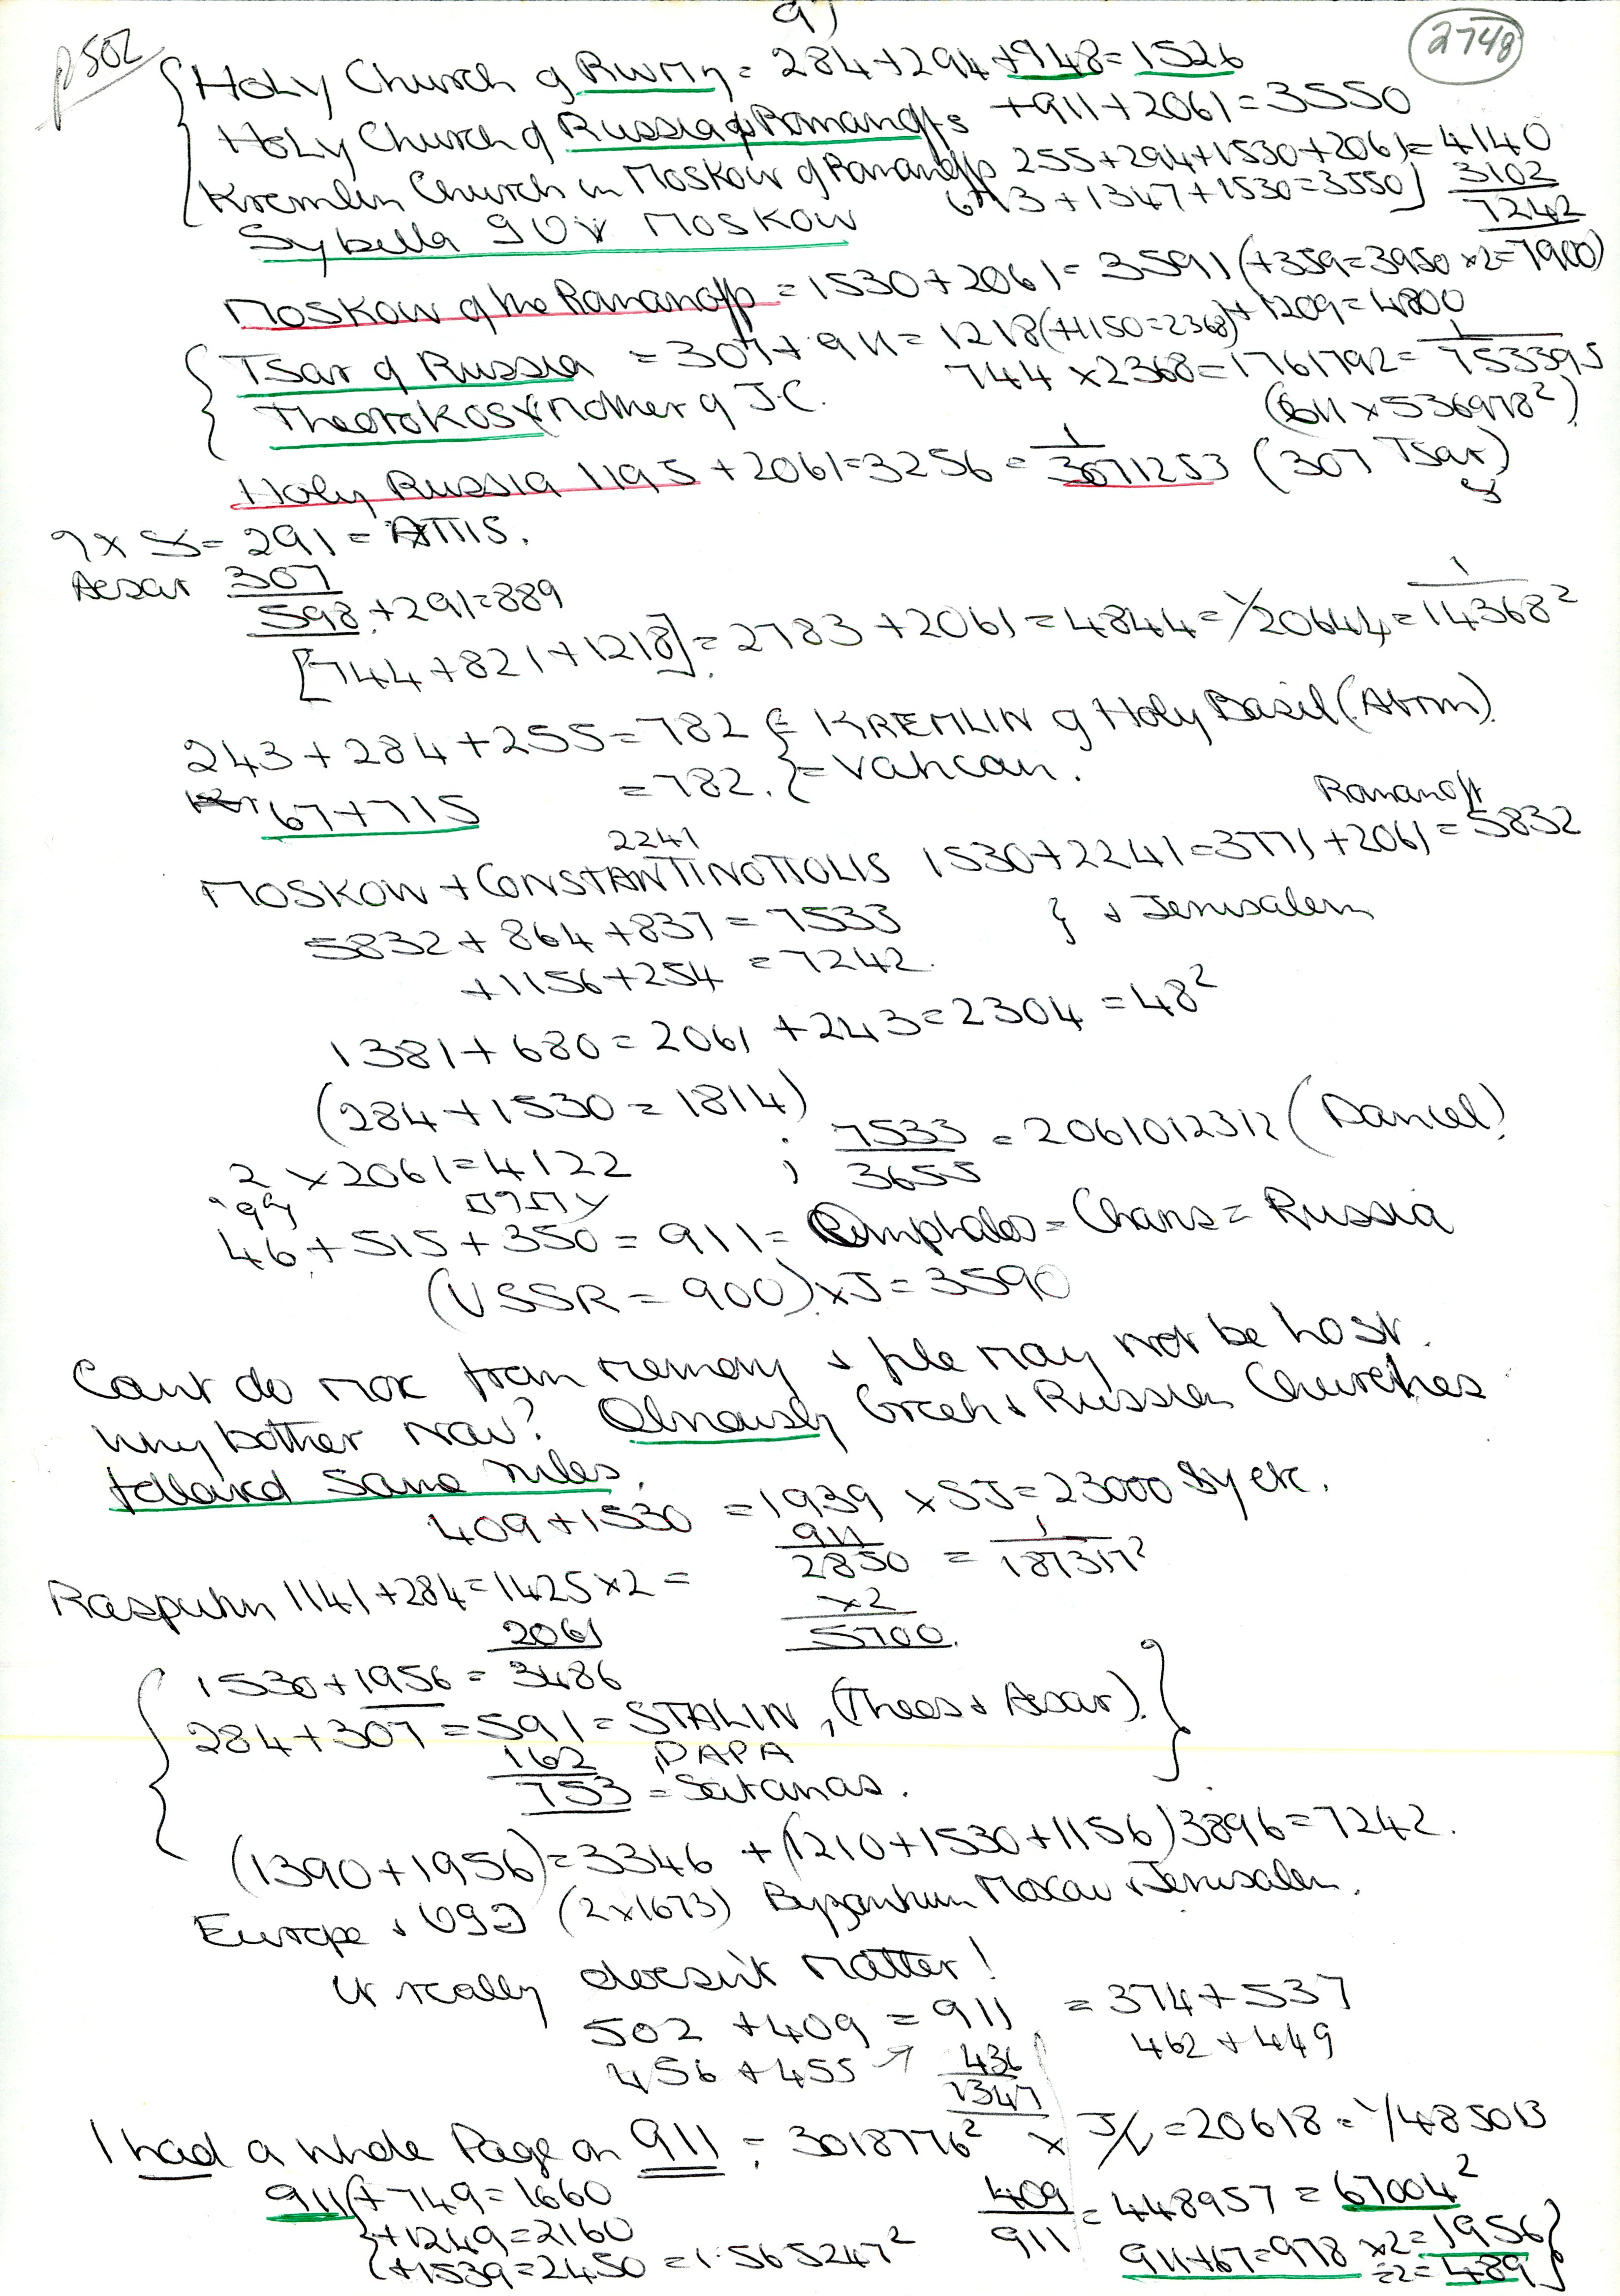 9)
p502
2748
Holy Church of = 284+294+948=1526
Holy Church of Russia & Romanoffs +911+2061=3550
Kremlin Church in Moskow of Romanoffs 255+294+1530+2061=4140
673+1347+1530=3550] 3102
7242
Sybilla MOSKOW
MOSKOW of the Romanoffs = 1530+2061= 3591 (+359=3950 x2=7900)
Tsar of Russia = 307+911=1218(+1150=2368)+1209=4800
Theotokos Mother of J.C. 744 x2368=1761792= 1/
(x536978²)
Holy Russia 1195 + 2061=3256 = 1/3071253 (307 Tsar)
= 291 = ATTIS.
Aesar 307
598 +291=889
[744+821+1218]=2783+2061=4844=1/20644=1/14368²
243+284+255=782 = KREMLIN of Holy Basil (Atom)
67+715 =782. = Vatican.
Romanoff
2241
MOSKOW + CONSTANTINOTTOLIS 1530+2241=3771+2061=5832
5832+864+837=7533 & Jerusalem
+1156+254 =7242.
1381+680=2061 +243=2304 =48²
(284+1530=1814)
2 x2061=4122 ; 7533/3655 = 2061012312 (Daniel)
46+515+350=911= Omphalos = Charis = Russia
(USSR = 900) xJ=3590
Cant do more from memory & file may not be lost.
Why bother now? Obviously Greek & Russian Churches
followed same rules.
409+1530 =1939 x5J=23000 Sy etc.
911
2850 = 1/187317²
Rasputin 1141+284=1425x2= x2
2061 5700.
1530+1956=3486
284+307=591=STALIN, (Theos & Aesar)
162 PAPA
753 = Satanas.
(1390+1956)=3346 +(1210+1530+1156)3896=7242.
Europe & (2x1673) Byzantium Moscow & Jerusalem.
It really doesn't matter!
502 +409 = 911 =374+537
456+455 436 462+449
1347
I had a whole Page on 911 = 3018776² x J/ =20618=1/485013
911 +749=1660
+1249=2160
+1539=2450=1.565247²
409/911 =448957=67004²
911+67=978 x2=1956
÷2=489